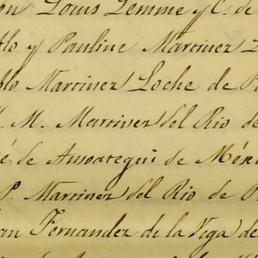 on Louis Lemme y C. de
blo y Pauline Martinez
blo Martinez Loche de Pa
M. Martinez del Rio de
é de Ansoategui de Méx
P. Martinez del Rio de P
an Fernandez de la Vega de